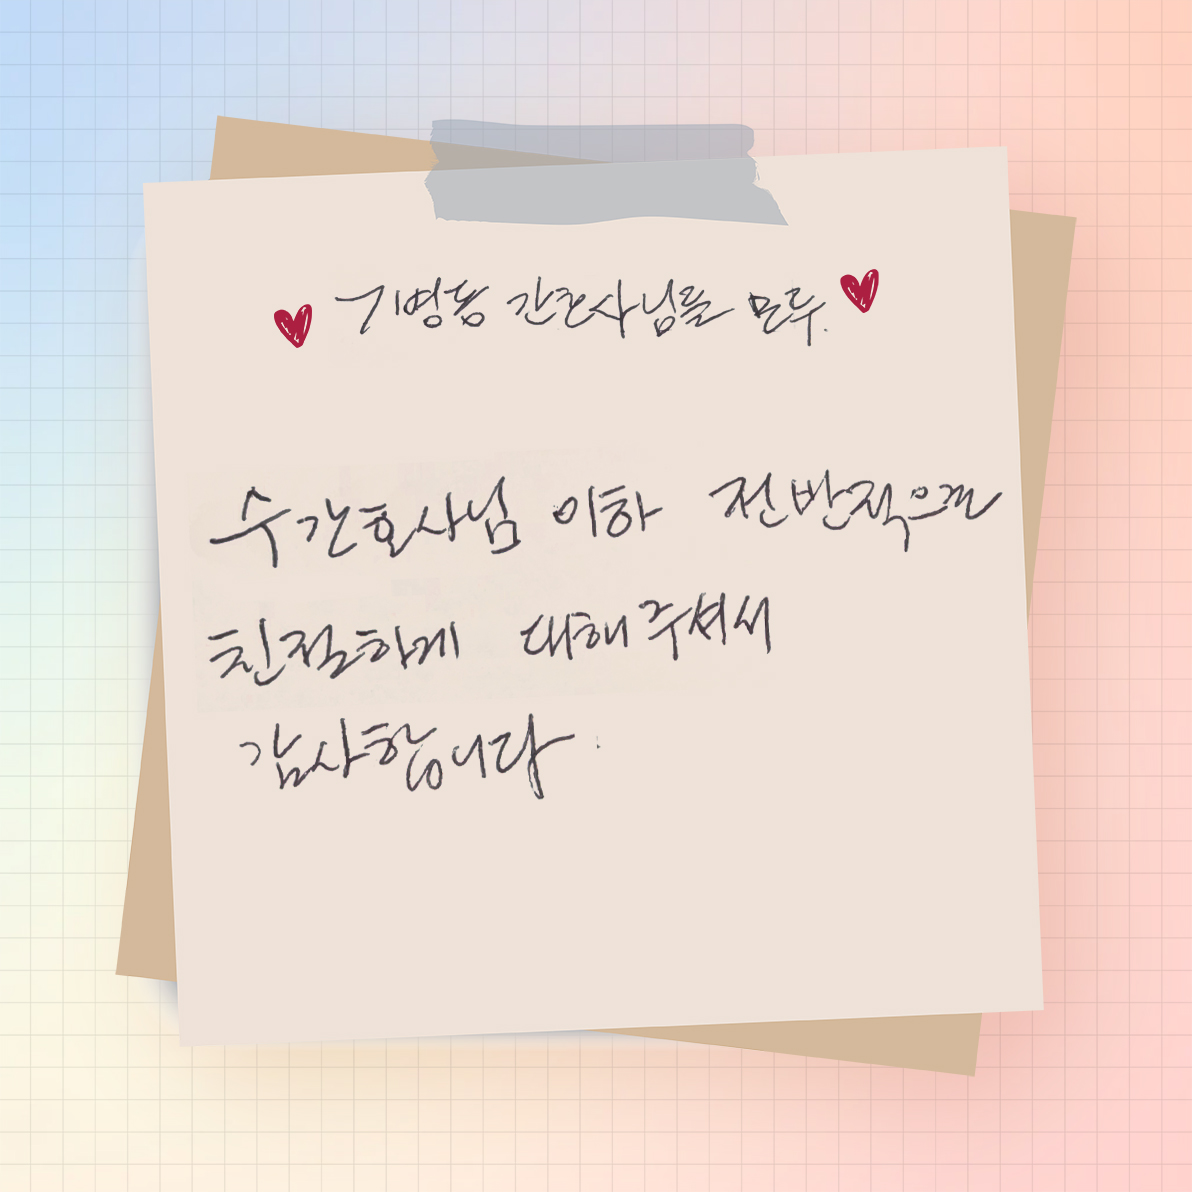 7병동 간호사님들 모두.
수간호사님 이하 전반적으로
친절하게 대해주셔서
감사합니다.